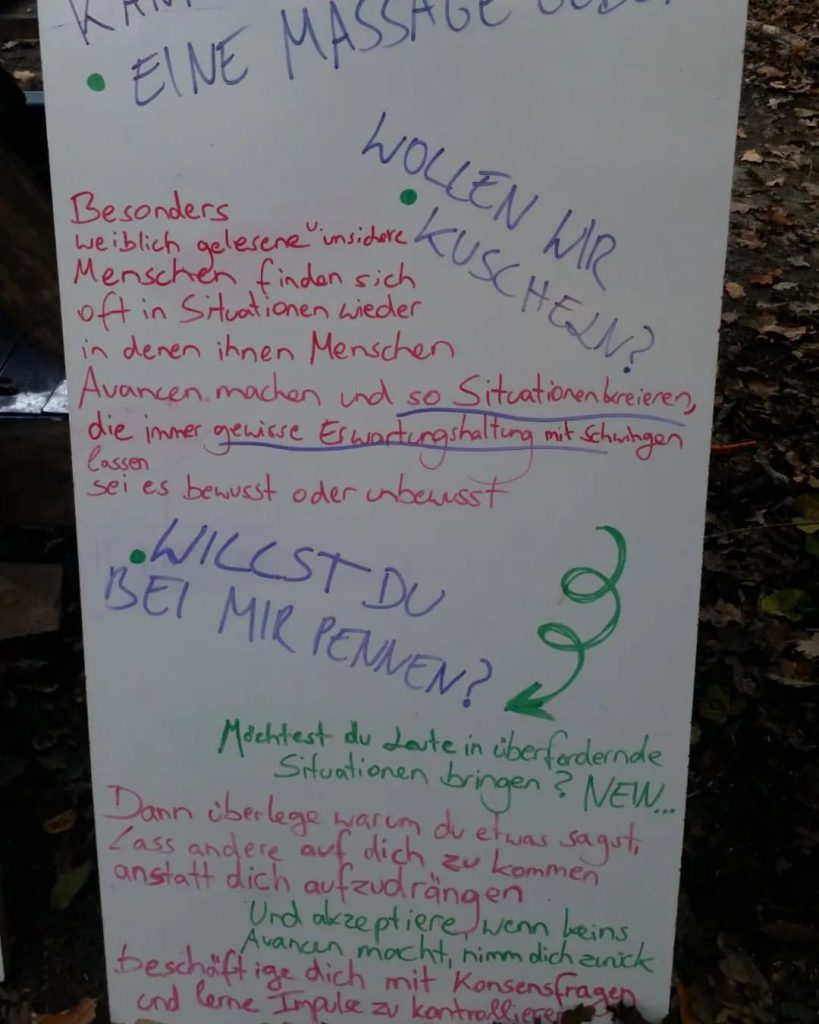 • EINE MASSAGE
WOLLEN WIR
• KUSCHELN?
Besonders
weiblich gelesene unsichere
Menschen finden sich
oft in Situationen wieder
in denen ihnen Menschen
Avancen machen und so Situationen kreieren,
die immer gewisse Erwartungshaltung mit schwingen
lassen
sei es bewusst oder unbewusst
• WILLST DU
BEI MIR PENNEN?
Möchtest du Leute in überfordernde
Situationen bringen? NEW...
Dann überlege warum du etwas sagst,
Lass andere auf dich zu kommen
anstatt dich aufzudrängen
Und akzeptiere, wenn keins
Avancen macht, nimm dich zurück
beschäftige dich mit Konsensfragen
und lerne Impulse zu kontrollieren